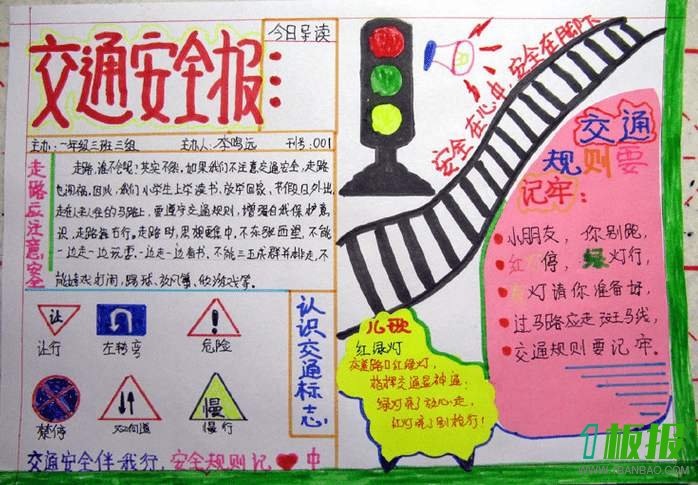 交通安全报
今日导读
安全在心中,安全在脚下
主办:一年级三班三组 主办人:李鸣远 刊号:001
走路应注意安全
走路,谁不会呢?其实不然,如果我们不注意交通安全,走路
也闯祸。因此,我们小学生上学读书、放学回家、节假日外出,
走在人来人往的马路上,要遵守交通规则,增强自我保护意
识,走路靠右行。走路时,思想集中,不东张西望,不能
一边走一边玩耍、一边走一边看书、不能三五成群并排走,不
能嬉戏打闹,踢球、放风筝、做游戏等。
认识交通标志
让
让行
左转弯
危险
禁停
双向道
慢
慢行
交通安全伴我行,安全规则记 中
儿歌
红绿灯
交道路口红绿灯,
指挥交通显神通,
绿灯亮了放心走,
红灯亮了别抢行!
交通
规则要
记牢:
小朋友,你别跑,
红灯停,绿灯行,
灯请你准备好,
过马路应走斑马线,
交通规则要记牢。
板报
WWW.1BANBAO.COM